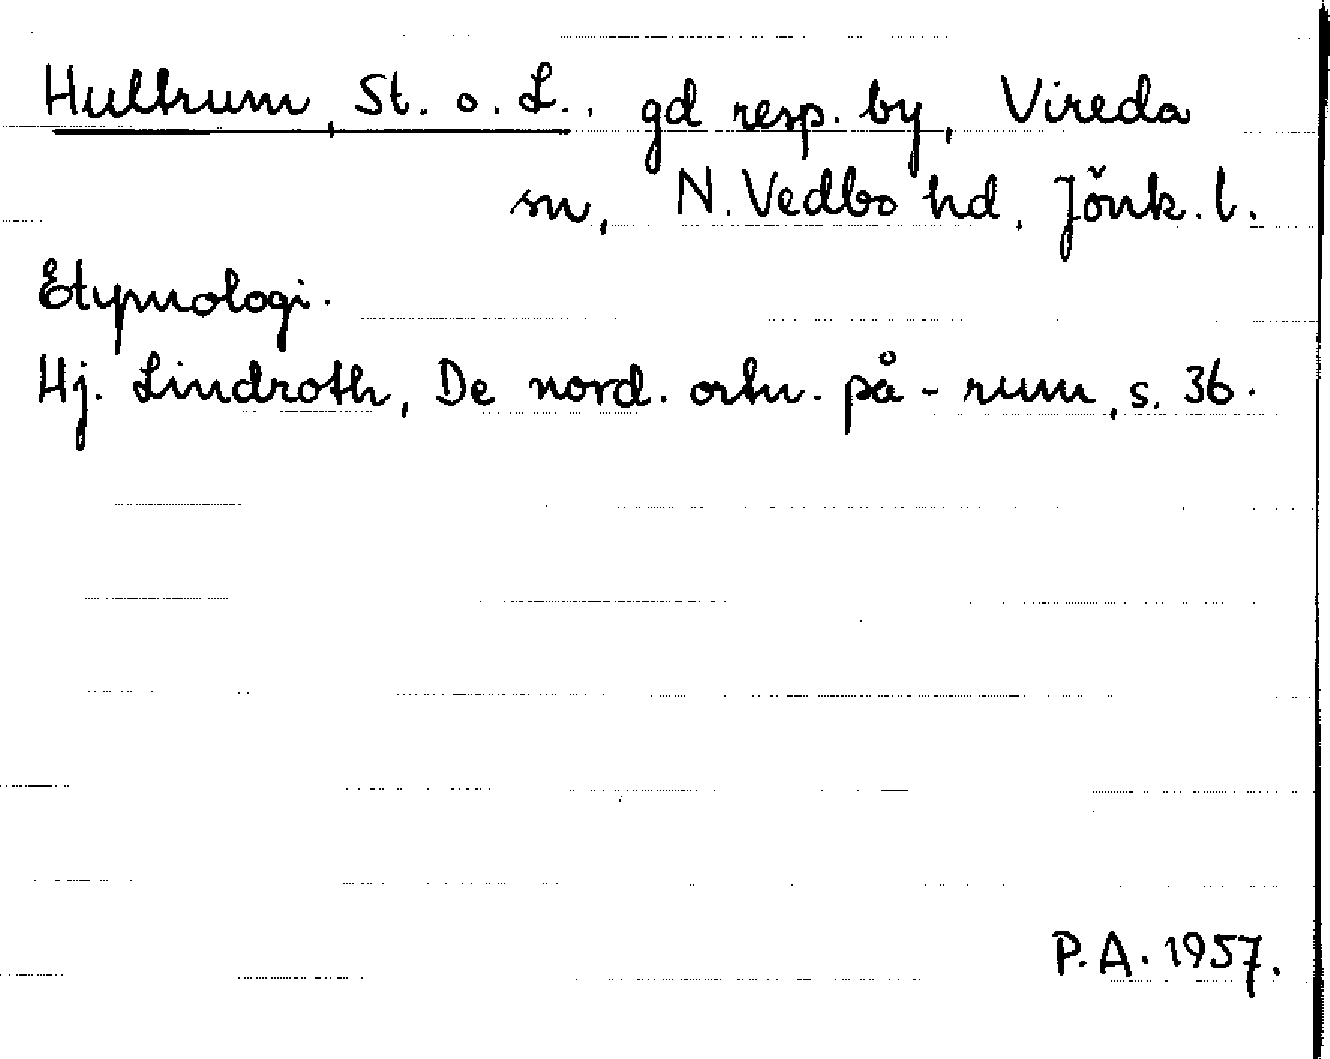 Hultrum, St. o. L., gd resp. by, Vireda
sn, N. Vedbo hd, Jönk. l.
Etymologi.
Hj. Lindroth, De nord. ortn. på -rum, s. 36.
P.A. 1957.